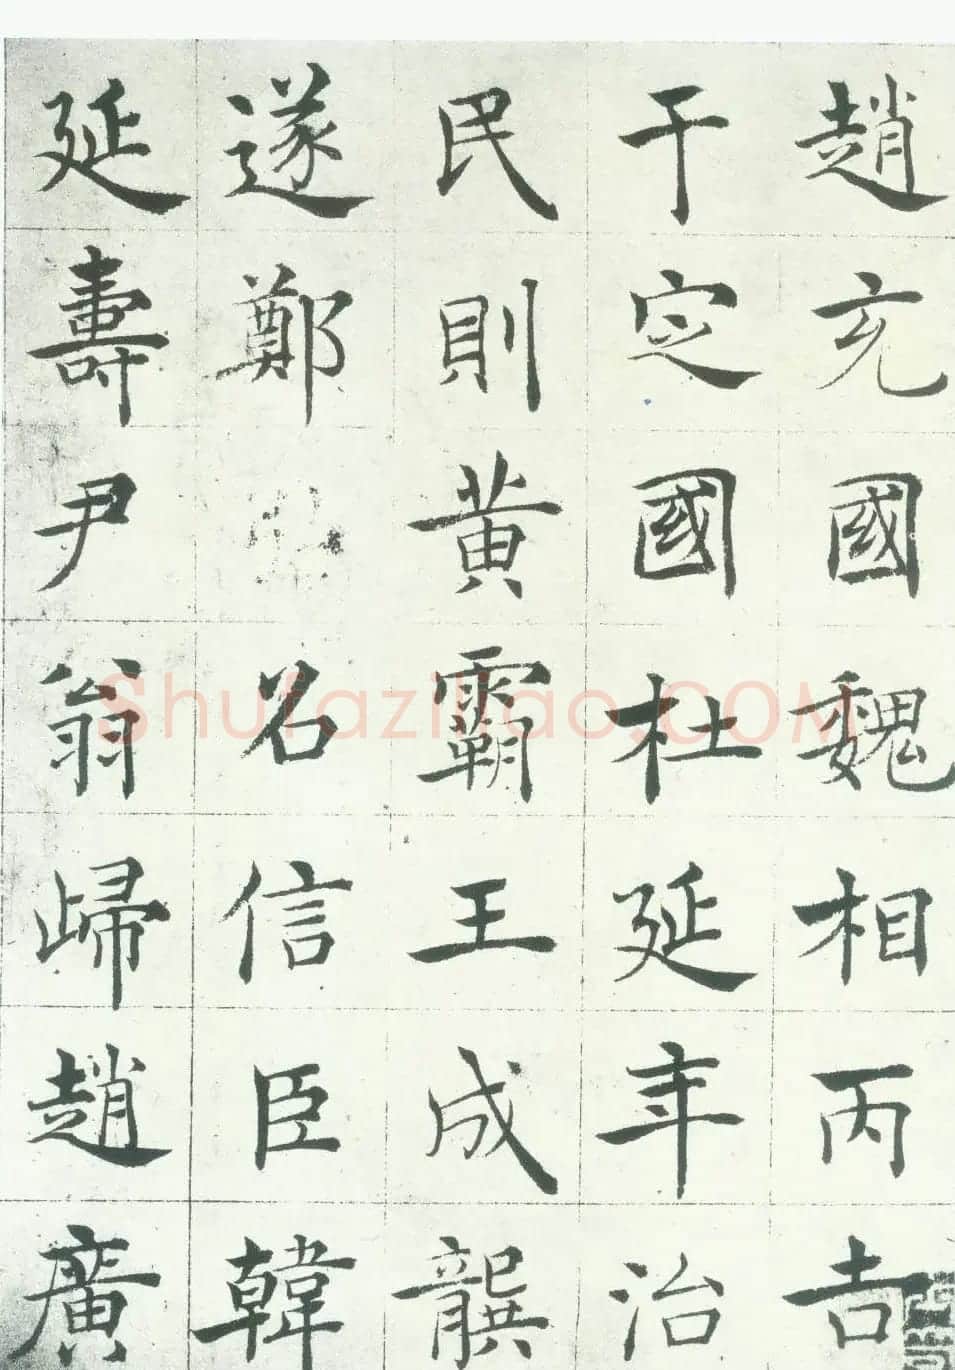 趙充國魏相丙吉
干定國杜延年治
民則黃霸王成龔
遂鄭名信臣韓
延壽尹翁歸趙廣
Shufaziliao.COM